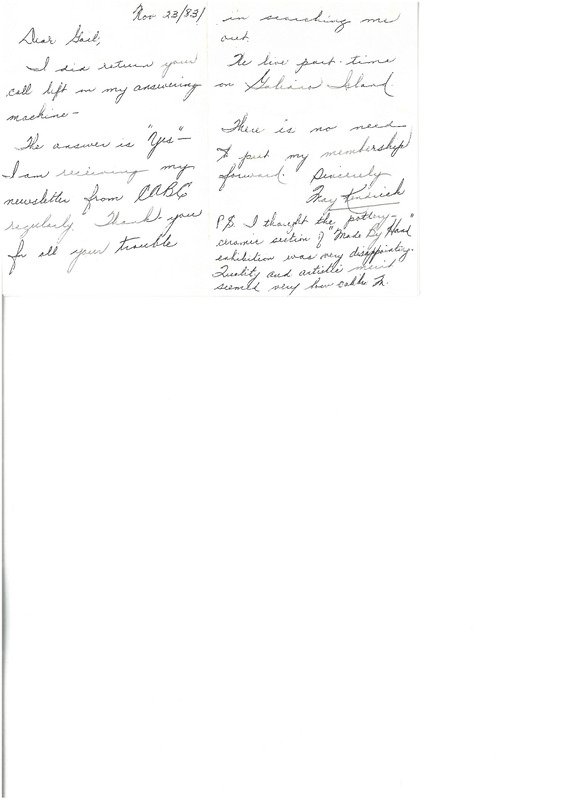 Nov 23/83
Dear Gail,
I did return your
call left on my answering
machine -
The answer is "Yes" -
I am receiving my
newsletter from CABC
regularly. Thank you
for all your trouble
in searching me
out.
We live part-time
on Galiano Island.
There is no need
to put my membership
forward. Sincerely
May Kendrick
P.S. I thought the pottery -
ceramic section of "Made By Hand"
exhibition was very disappointing.
Quality and artistic merit
seemed very low calibre M.